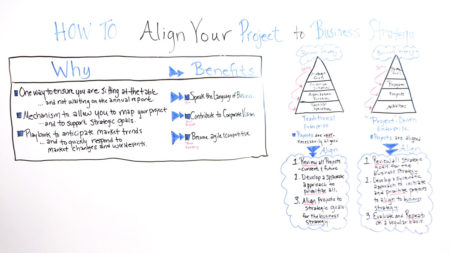 HOW TO Align Your Project to Business Strategy
Why
Benefits
One way to ensure you are sitting at the table
...and not waiting on the annual report.
Mechanism to allow you to map your project
...and to support strategic goals.
Playbook to anticipate market trends
...and to quickly respond to
market changes and
Speak the Language of Business
Contribute to Corporate Vision
Become agile & competitive
Traditional
Enterprise
Projects are not
necessarily aligned
Align
1. Review all Projects
current & future
2. Develop a systematic
approach to
prioritize all.
3. Align Projects to
strategic goals
for the business
strategy.
Project-Driven
Enterprise
Projects are aligned
Align
1. Review all strategic
goals for the
business strategy
2. Develop a systematic
approach to initiate
and prioritize projects
to align to business
strategy
3. Evaluate and Repeat
on a regular basis.